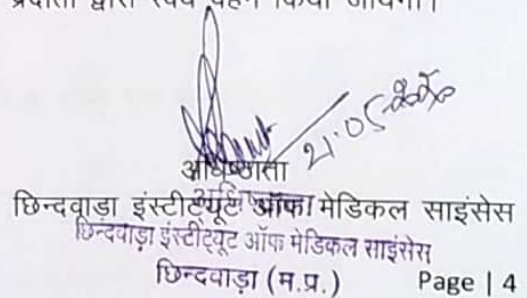 प्रदाता द्वारा स्वयं वहन किया जायेगा।
21.05
अधिष्ठाता
छिन्दवाड़ा इंस्टीट्यूट ऑफ मेडिकल साइंसेस
अधिष्ठाता
छिन्दवाड़ा इंस्टीट्यूट ऑफ मेडिकल साइंसेस
छिन्दवाड़ा (म.प्र.)
Page | 4